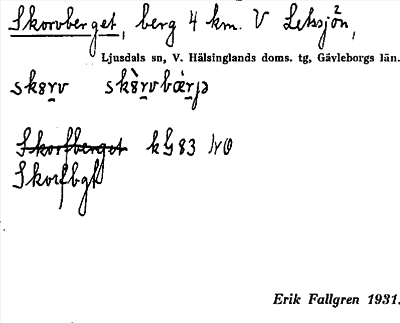 Skorvberget, berg 4 km. V Letsjön,
Ljusdals sn, V. Hälsinglands doms. tg, Gävleborgs län.
Skorfberget kG83 NO
Skorfbgt
Erik Fallgren 1931.